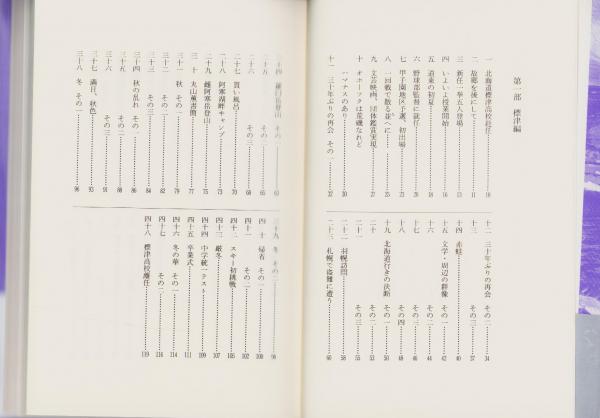 第一部 標津編
一 北海道標津高校赴任 10
二 故郷を後にして 11
三 新任一挙五人登場 13
四 いよいよ授業開始 16
五 道東の初夏 18
六 野球部監督に就任 20
七 甲子園地区予選、初出場 23
八 一回戦で散る並へに 25
九 文芸映画、団体鑑賞実現 27
十 オホーツクは荒磯なれど
ハマナスのあり 30
十一 三十年ぶりの再会 その一 32
十二 三十年ぶりの再会 その二 34
十三 その三 37
十四 赤蛙 40
十五 文学・周辺の群像 その一 42
十六 その二 44
十七 その三 46
十八 その四 48
十九 北海道行きの決断 その一 50
二十 その二 53
二十一 その三 55
二十二 羽幌訪問 58
二十三 札幌で盗難に遭う 60
二十四 羅臼岳登山 その一 63
二十五 その二 65
二十六 その三 68
二十七 貰い風呂 70
二十八 阿寒湖畔キャンプ 73
二十九 雌阿寒岳登山 75
三十 丸山薫書簡 77
三十一 秋 その一 79
三十二 その二 82
三十三 その三 84
三十四 秋の乱れ その一 86
三十五 その二 88
三十六 その三 91
三十七 満目、秋色 93
三十八 冬 その一 96
三十九 冬 その二 98
四十 帰省 その一 100
四十一 その二 102
四十二 スキー初挑戦 105
四十三 厳冬 107
四十四 中学統一テスト 109
四十五 卒業式 111
四十六 冬の華 その一 114
四十七 その二 116
四十八 標津高校離任 119